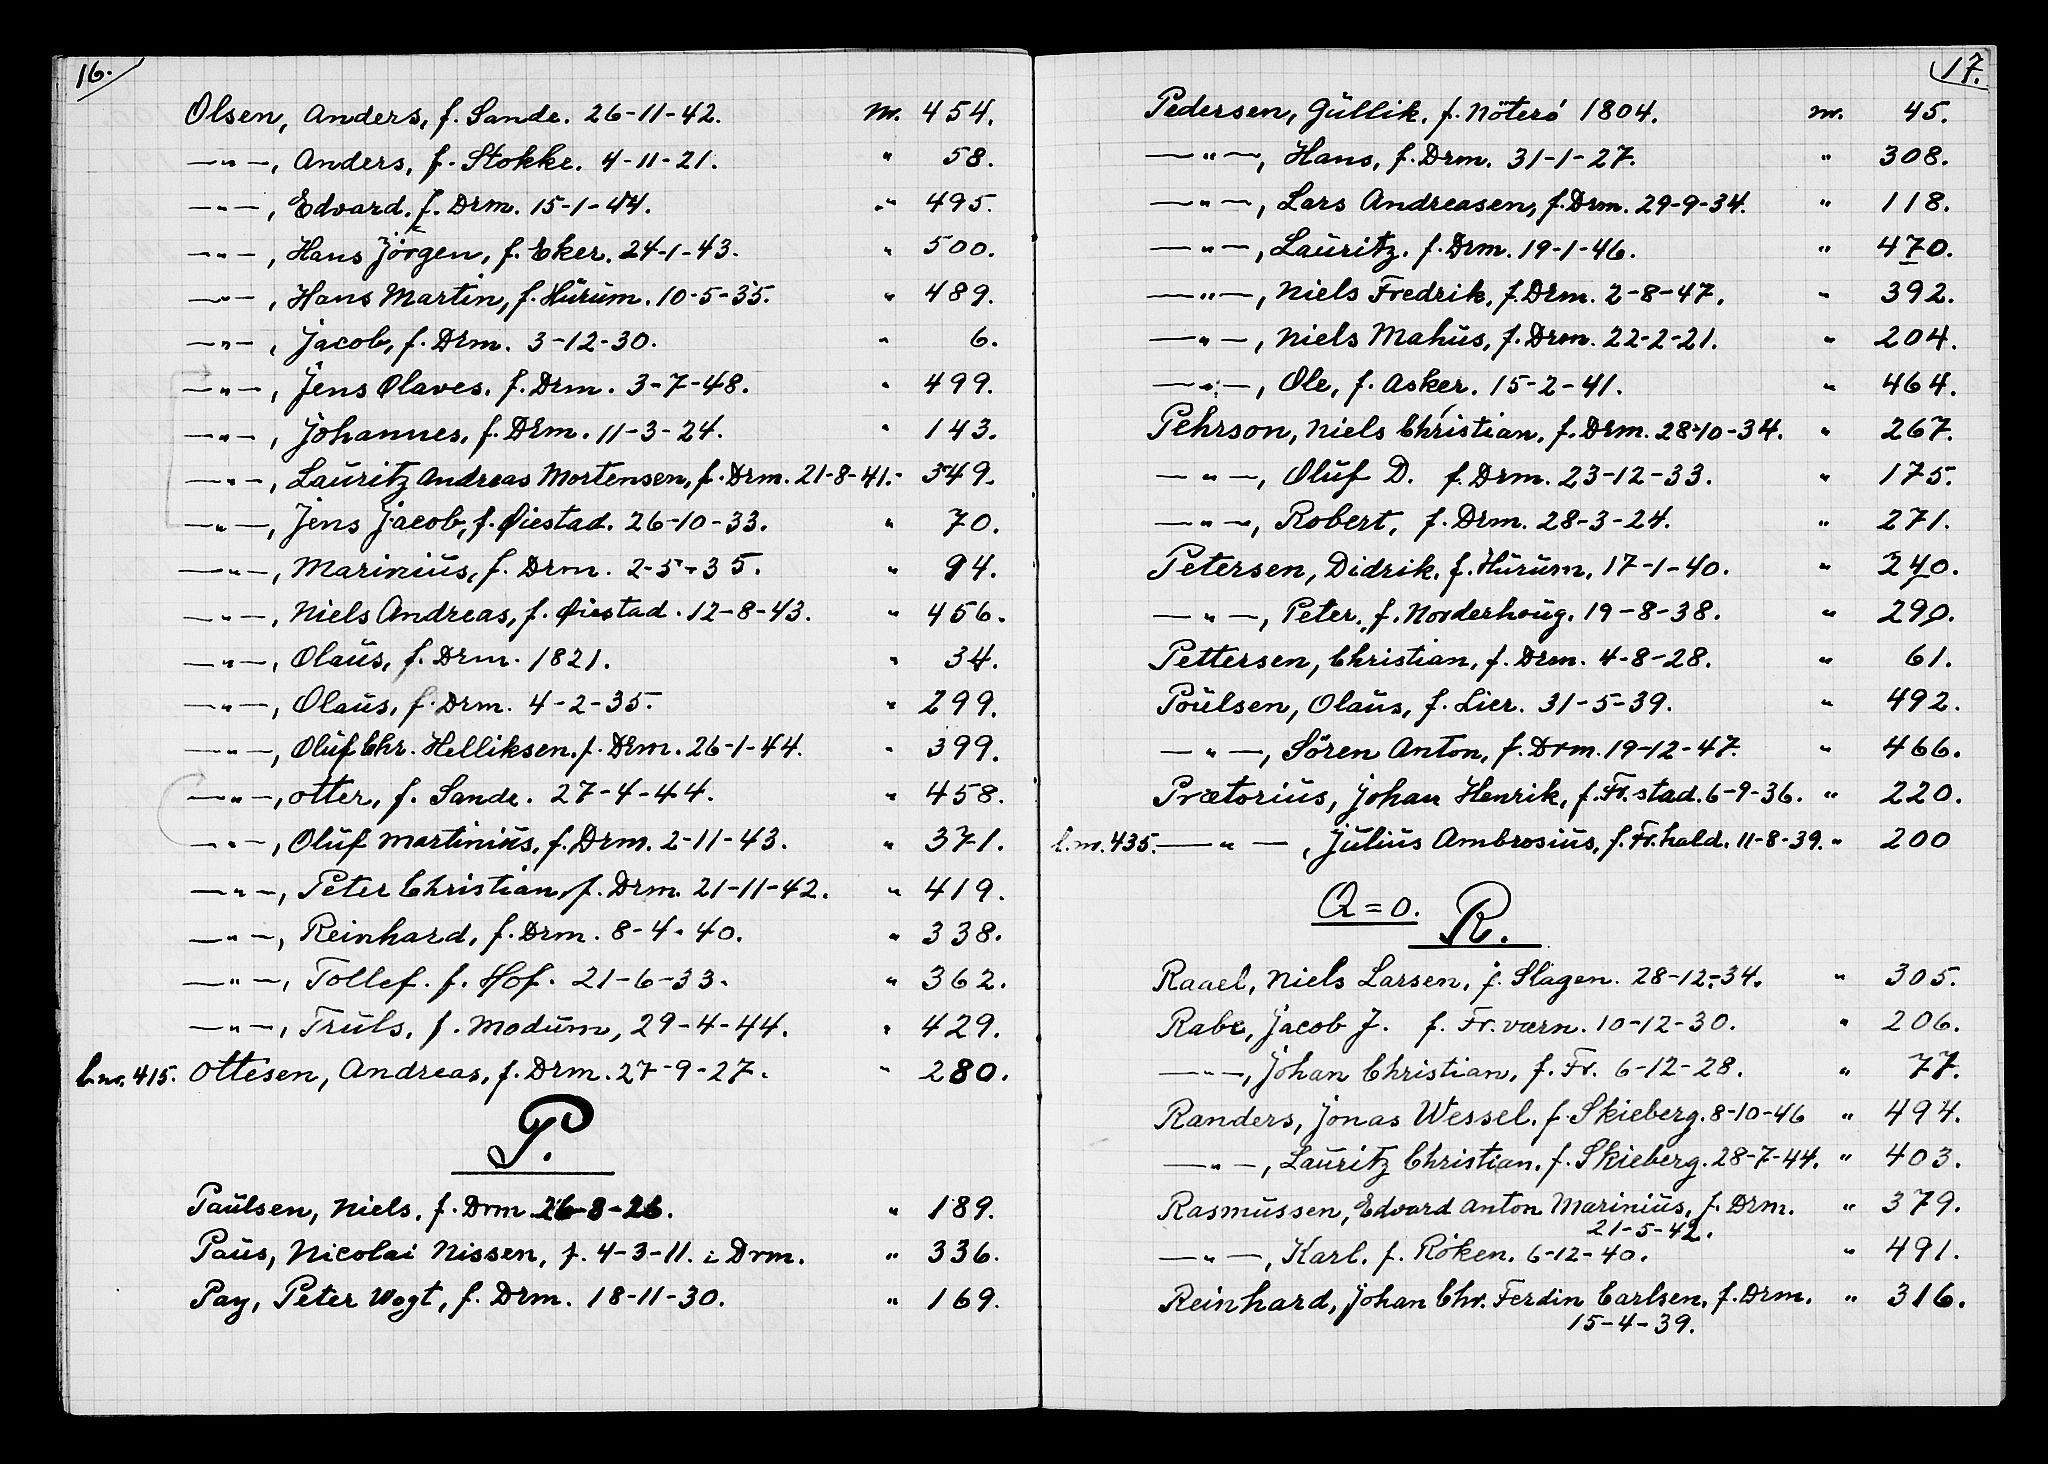 16.
Olsen, Anders, f. Sande. 26-11-42. nr. 454.
—"—, Anders, f. Stokke. 4-11-21. " 58.
—"—, Edvard, f. Drm. 15-1-44. " 495.
—"—, Hans Jörgen, f. Eker. 24-1-43. " 500.
—"—, Hans Martin, f. Hürüm. 10-5-35. " 489.
—"—, Jacob, f. Drm. 3-12-30. " 6.
—"—, Jens Olaves, f. Drm. 3-7-48. " 499.
—"—, Johannes, f. Drm. 11-3-24. " 143.
—"—, Laüritz Andreas Mortensen, f. Drm. 21-8-41. - 349.
—"—, Jens Jacob, f. Øiestad. 26-10-33. " 70.
—"—, Mariniüs, f. Drm. 2-5-35. " 94.
—"—, Niels Andreas, f. Øiestad. 12-8-43. " 456.
—"—, Olaüs, f. Drm. 1821. " 34.
—"—, Olaüs, f. Drm. 4-2-35. " 299.
—"—, Olüf Chr. Helliksen, f. Drm. 26-1-44. " 399.
—"—, Otter, f. Sande. 27-4-44. " 458.
—"—, Olüf Martiniüs, f. Drm. 2-11-43. " 371.
—"—, Peter Christian, f. Drm. 21-11-42. " 419.
—"—, Reinhard, f. Drm. 8-4-40. " 338.
—"—, Tollef. f. Hof. 21-6-33. " 362.
—"—, Trüls, f. Modüm, 29-4-44. " 429.
l.nr. 415. Ottesen, Andreas, f. Drm. 27-9-27. " 280.
P.
Paülsen, Niels, f. Drm 26-8-26. " 189.
Paüs, Nicolai Nissen, f. 4-3-11. i Drm. " 336.
Pay, Peter Vogt, f. Drm. 18-11-30. " 169.
17.
Pedersen, Güllik, f. Nöterö 1804. nr. 45.
—"—, Hans, f. Drm. 31-1-27. " 308.
—"—, Lars Andreasen, f. Drm. 29-9-34. " 118.
—"—, Laüritz. f. Drm. 19-1-46. " 470.
—"—, Niels Fredrik, f. Drm. 2-8-47. " 392.
—"—, Niels Mahüs, f. Drm. 22-2-21. " 204.
—"—, Ole, f. Asker. 15-2-41. " 464.
Pehrson, Niels Christian, f. Drm. 28-10-34. " 267.
—"—, Olüf D. f. Drm. 23-12-33. " 175.
—"—, Robert, f. Drm. 28-3-24. " 271.
Petersen, Didrik, f. Hürüm, 17-1-40. " 240.
—"—, Peter, f. Norderhoüg. 19-8-38. " 290.
Pettersen, Christian, f. Drm. 4-8-28. " 61.
Poülsen, Olaüs, f. Lier. 31-5-39. " 492.
—"—, Sören Anton, f. Drm. 19-12-47. " 466.
Prætoriüs, Johan Henrik, f. Fr.stad. 6-9-36. " 220.
l.nr. 435. —"—, Jüliüs Ambrosiüs, f. Fr.hald. 11-8-39. " 200
Q=0. R.
Raael, Niels Larsen, f. Slagen. 28-12-34. " 305.
Rabe, Jacob J. f. Fr.værn. 10-12-30. " 206.
—"—, Johan Christian, f. Fr. 6-12-28. " 77.
Randers, Jonas Wessel. f. Skieberg. 8-10-46 " 494.
—"—, Laüritz Christian, f. Skieberg. 28-7-44. " 403.
Rasmüssen, Edvard Anton Mariniüs, f. Drm. " 379.
21-5-42.
—"—, Karl, f. Röken. 6-12-40. " 491.
Reinhard, Johan Chr. Ferdin Carlsen, f. Drm. " 316.
15-4-39.